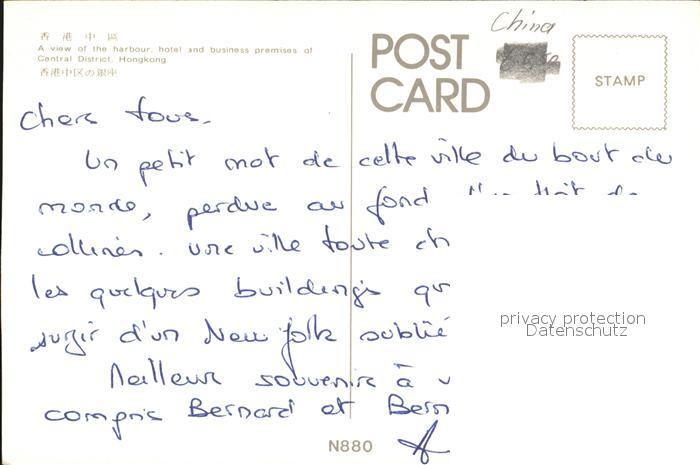 香港中區
A view of the harbour, hotel and business premises of
Central District, Hongkong
香港中区の銀座
POST
CARD
China
STAMP
Chers tous.
Un petit mot de cette ville du bout du
monde, perdue au fond
collines. une ville toute ch
les quelques buildings qu
surgir d'un New York oublié
Meilleurs souvenirs à v
compris Bernard et Bern
privacy protection
Datenschutz
N880